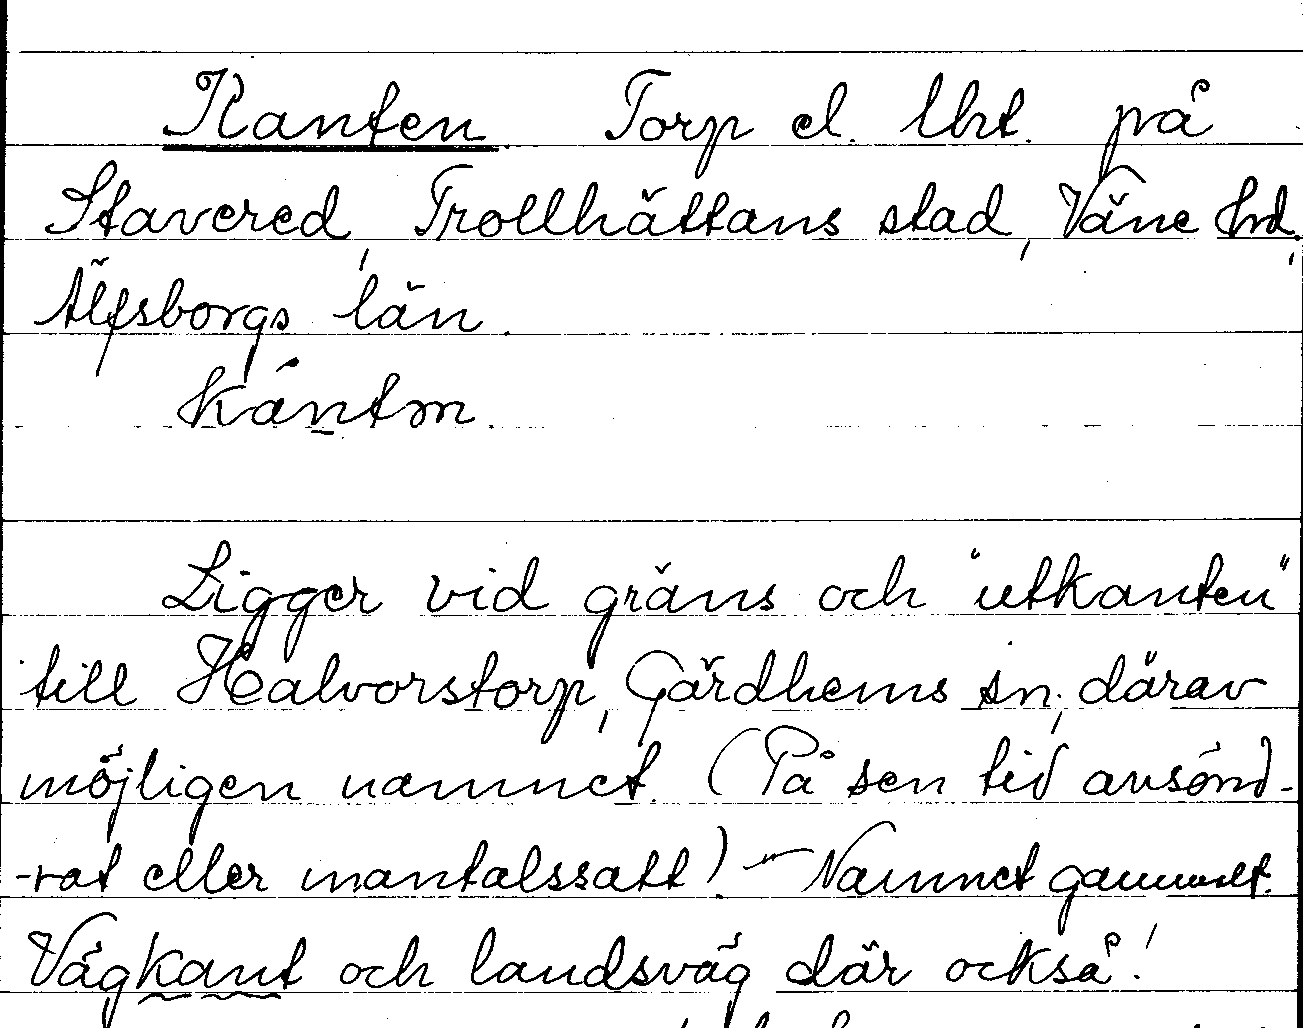 Kanten. Torp el. lht. på
Stavered, Trollhättans stad, Väne hd,
Älfsborgs län.
kántn.
Ligger vid gräns och "utkanten"
till Halvorstorp, Gärdhems sn; därav
möjligen namnet. (På sen tid avsönd-
-rat eller mantalssatt). – Namnet gammalt.
Vägkant och landsväg där också!